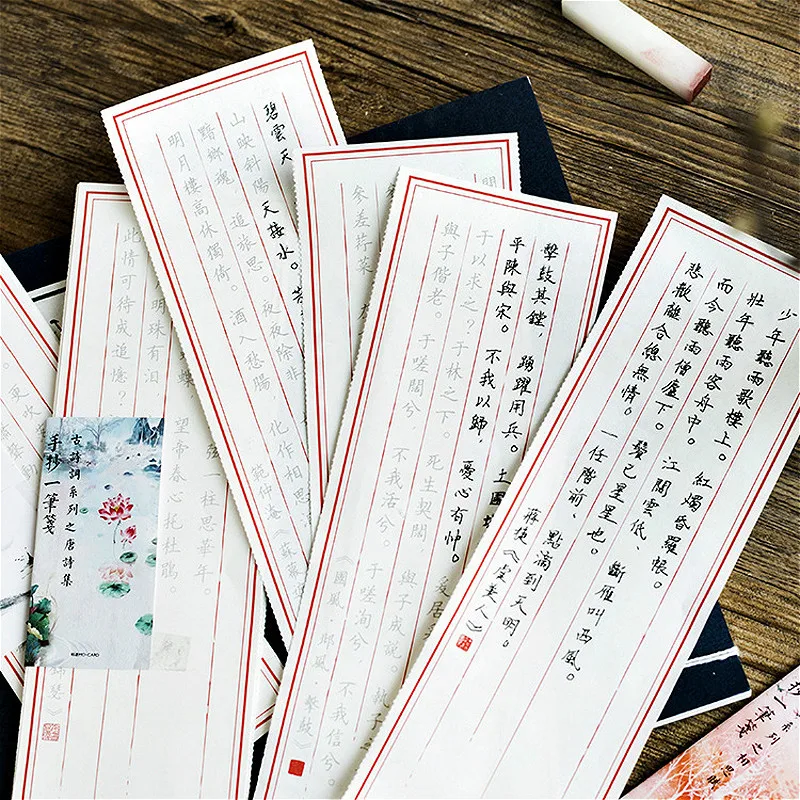 少年聽雨歌樓上。紅燭昏羅帳。
壯年聽雨客舟中。江闊雲低、斷雁叫西風。
而今聽雨僧廬下。鬢已星星也。
悲歡離合總無情。一任階前、點滴到天明。
蔣捷《虞美人》
擊鼓其鏜，踴躍用兵。土國
平陳與宋。不我以歸，憂心有忡。爰居
于以求之？于林之下。死生契闊 與子成說。執子
與子偕老。于嗟闊兮 不我活兮。于嗟洵兮 不我信兮。
《國風·邶風·擊鼓》
參差荇菜
碧雲天
山映斜陽天接水。芳
黯鄉魂 追旅思。夜夜除非
明月樓高休獨倚。酒入愁腸 化作相
范仲淹《蘇幕
弦一柱思華年。
蝶，望帝春心托杜鵑。
明珠有淚
此情可待成追憶？
錦瑟》
古詩詞系列之唐詩集
手抄一筆箋
更收
系列之相思
抄一筆箋